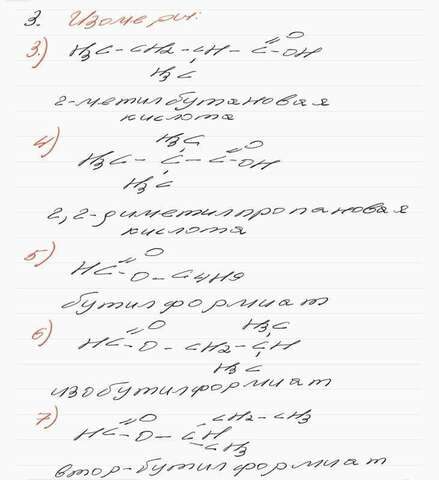 3. Изомеры:
3.) H3C-CH2-CH-C=O-OH
H3C
2-метилбутановая
кислота
H3C
4) H3C-C-C=O-OH
H3C
2,2-диметилпропановая
кислота
5) HC=O-O-C4H9
бутилформиат
H3C
6) HC=O-O-CH2-CH
H3C
изобутилформиат
CH2-CH3
7) HC=O-O-CH
CH3
втор-бутилформиат